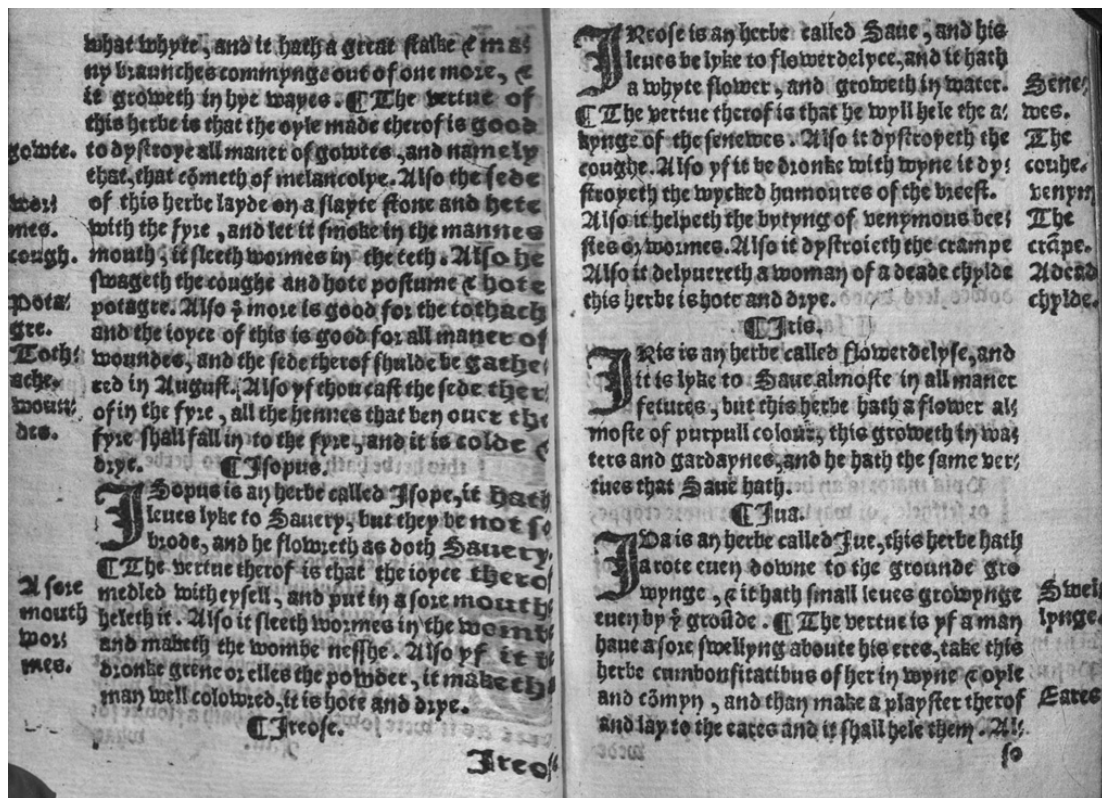 what whyte, and it hath a great stalke & ma⸗
ny braunches commynge out of one more, &
it groweth in hye wayes. ¶ The vertue of
this herbe is that the oyle made therof is good
gowte. to dystroye all maner of gowtes, and namely
that, that cōmeth of melancolye. Also the sede
wor⸗ of this herbe layde on a slayte stone and hete
mes. with the fyre, and let it smoke in the mannes
cough. mouth, it sleeth wormes in the teth. Also he
swageth the coughe and hote postume & hote
Pota⸗ potagre. Also ẙ more is good for the tothach
gre. and the ioyce of this is good for all maner of
Toth⸗ woundes, and the sede therof shulde be gathe⸗
ache. red in August. Also yf thou cast the sede ther
woun⸗ of in the fyre, all the hennes that ben ouer the
des. fyre shall fall in to the fyre, and it is colde &
drye. ¶ Isopus.
ISopus is an herbe called Isope, it hath
leues lyke to Sauery, but they be not so
brode, and he flowreth as doth Sauery.
¶ The vertue therof is that the ioyce thero
A sore medled with eysell, and put in a sore mouth
mouth heleth it. Also it sleeth wormes in the womb
wor⸗ and maketh the wombe nesshe. Also yf it b
mes. dronke grene or elles the powder, it maketh
man well colowred, it is hote and drye.
¶ Ireose.
Ireos
IReose is an herbe called Saue, and his
leues be lyke to flowerdelyce, and it hath
a whyte flower, and groweth in water. Sene⸗
¶ The vertue therof is that he wyll hele the a⸗ wes.
kynge of the senewes. Also it dystroyeth the The
coughe. Also yf it be dronke with wyne it dy⸗ couhe.
stroyeth the wycked humoures of the breest. venym
Also it helpeth the bytyng of venymous bee⸗ The
stes or wormes. Also it dystroieth the crampe crāpe.
Also it delyuereth a woman of a deade chylde A dead
this herbe is hote and drye. chylde.
¶ Iris.
IRis is an herbe called flowerdelyse, and
it is lyke to Saue almoste in all maner
fetures, but this herbe hath a flower al⸗
moste of purpull colour, this groweth in wa⸗
ters and gardaynes, and he hath the same ver⸗
tues that Saue hath.
¶ Iua.
IVa is an herbe called Iue, this herbe hath
a rote euen downe to the grounde gro
wynge, & it hath small leues growynge Swel
euen by ẙ groūde. ¶ The vertue is yf a man lynge.
haue a sore swellyng aboute his eres, take this
herbe cumbonsitatibus of her in wyne & oyle
and cōmyn, and than make a playster therof Eares
and lay to the eares and it shall hele them. Al⸗
so